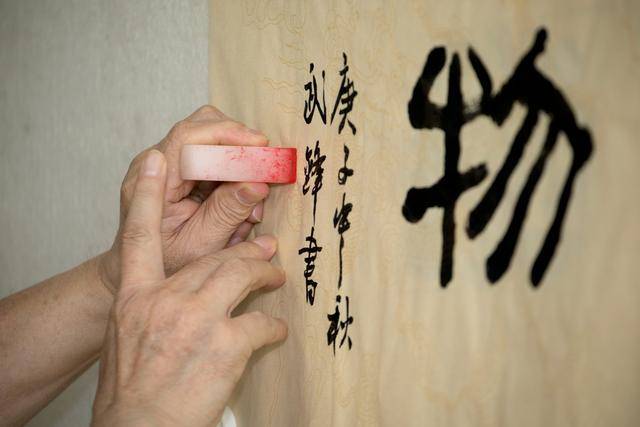 物
庚子中秋
武鋒書